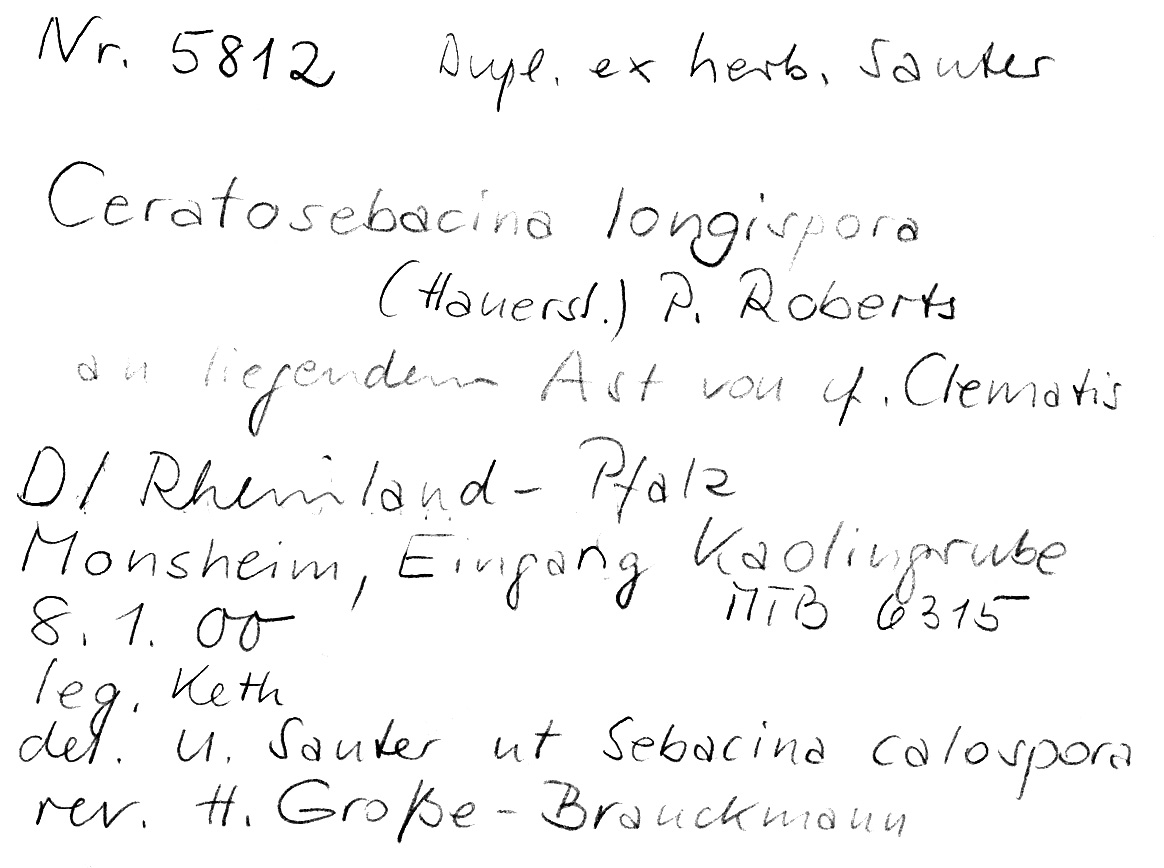 Nr. 5812 Dupl. ex herb. Sauter
Ceratosebacina longispora
(Hauersl.) P. Roberts
an liegendem Ast von cf. Clematis
D/ Rheinland-Pfalz
Monsheim, Eingang Kaolingrube
8.1.00 MTB 6315
leg. Keth
det. U. Sauter ut Sebacina calospora
rev. H. Große-Brauckmann